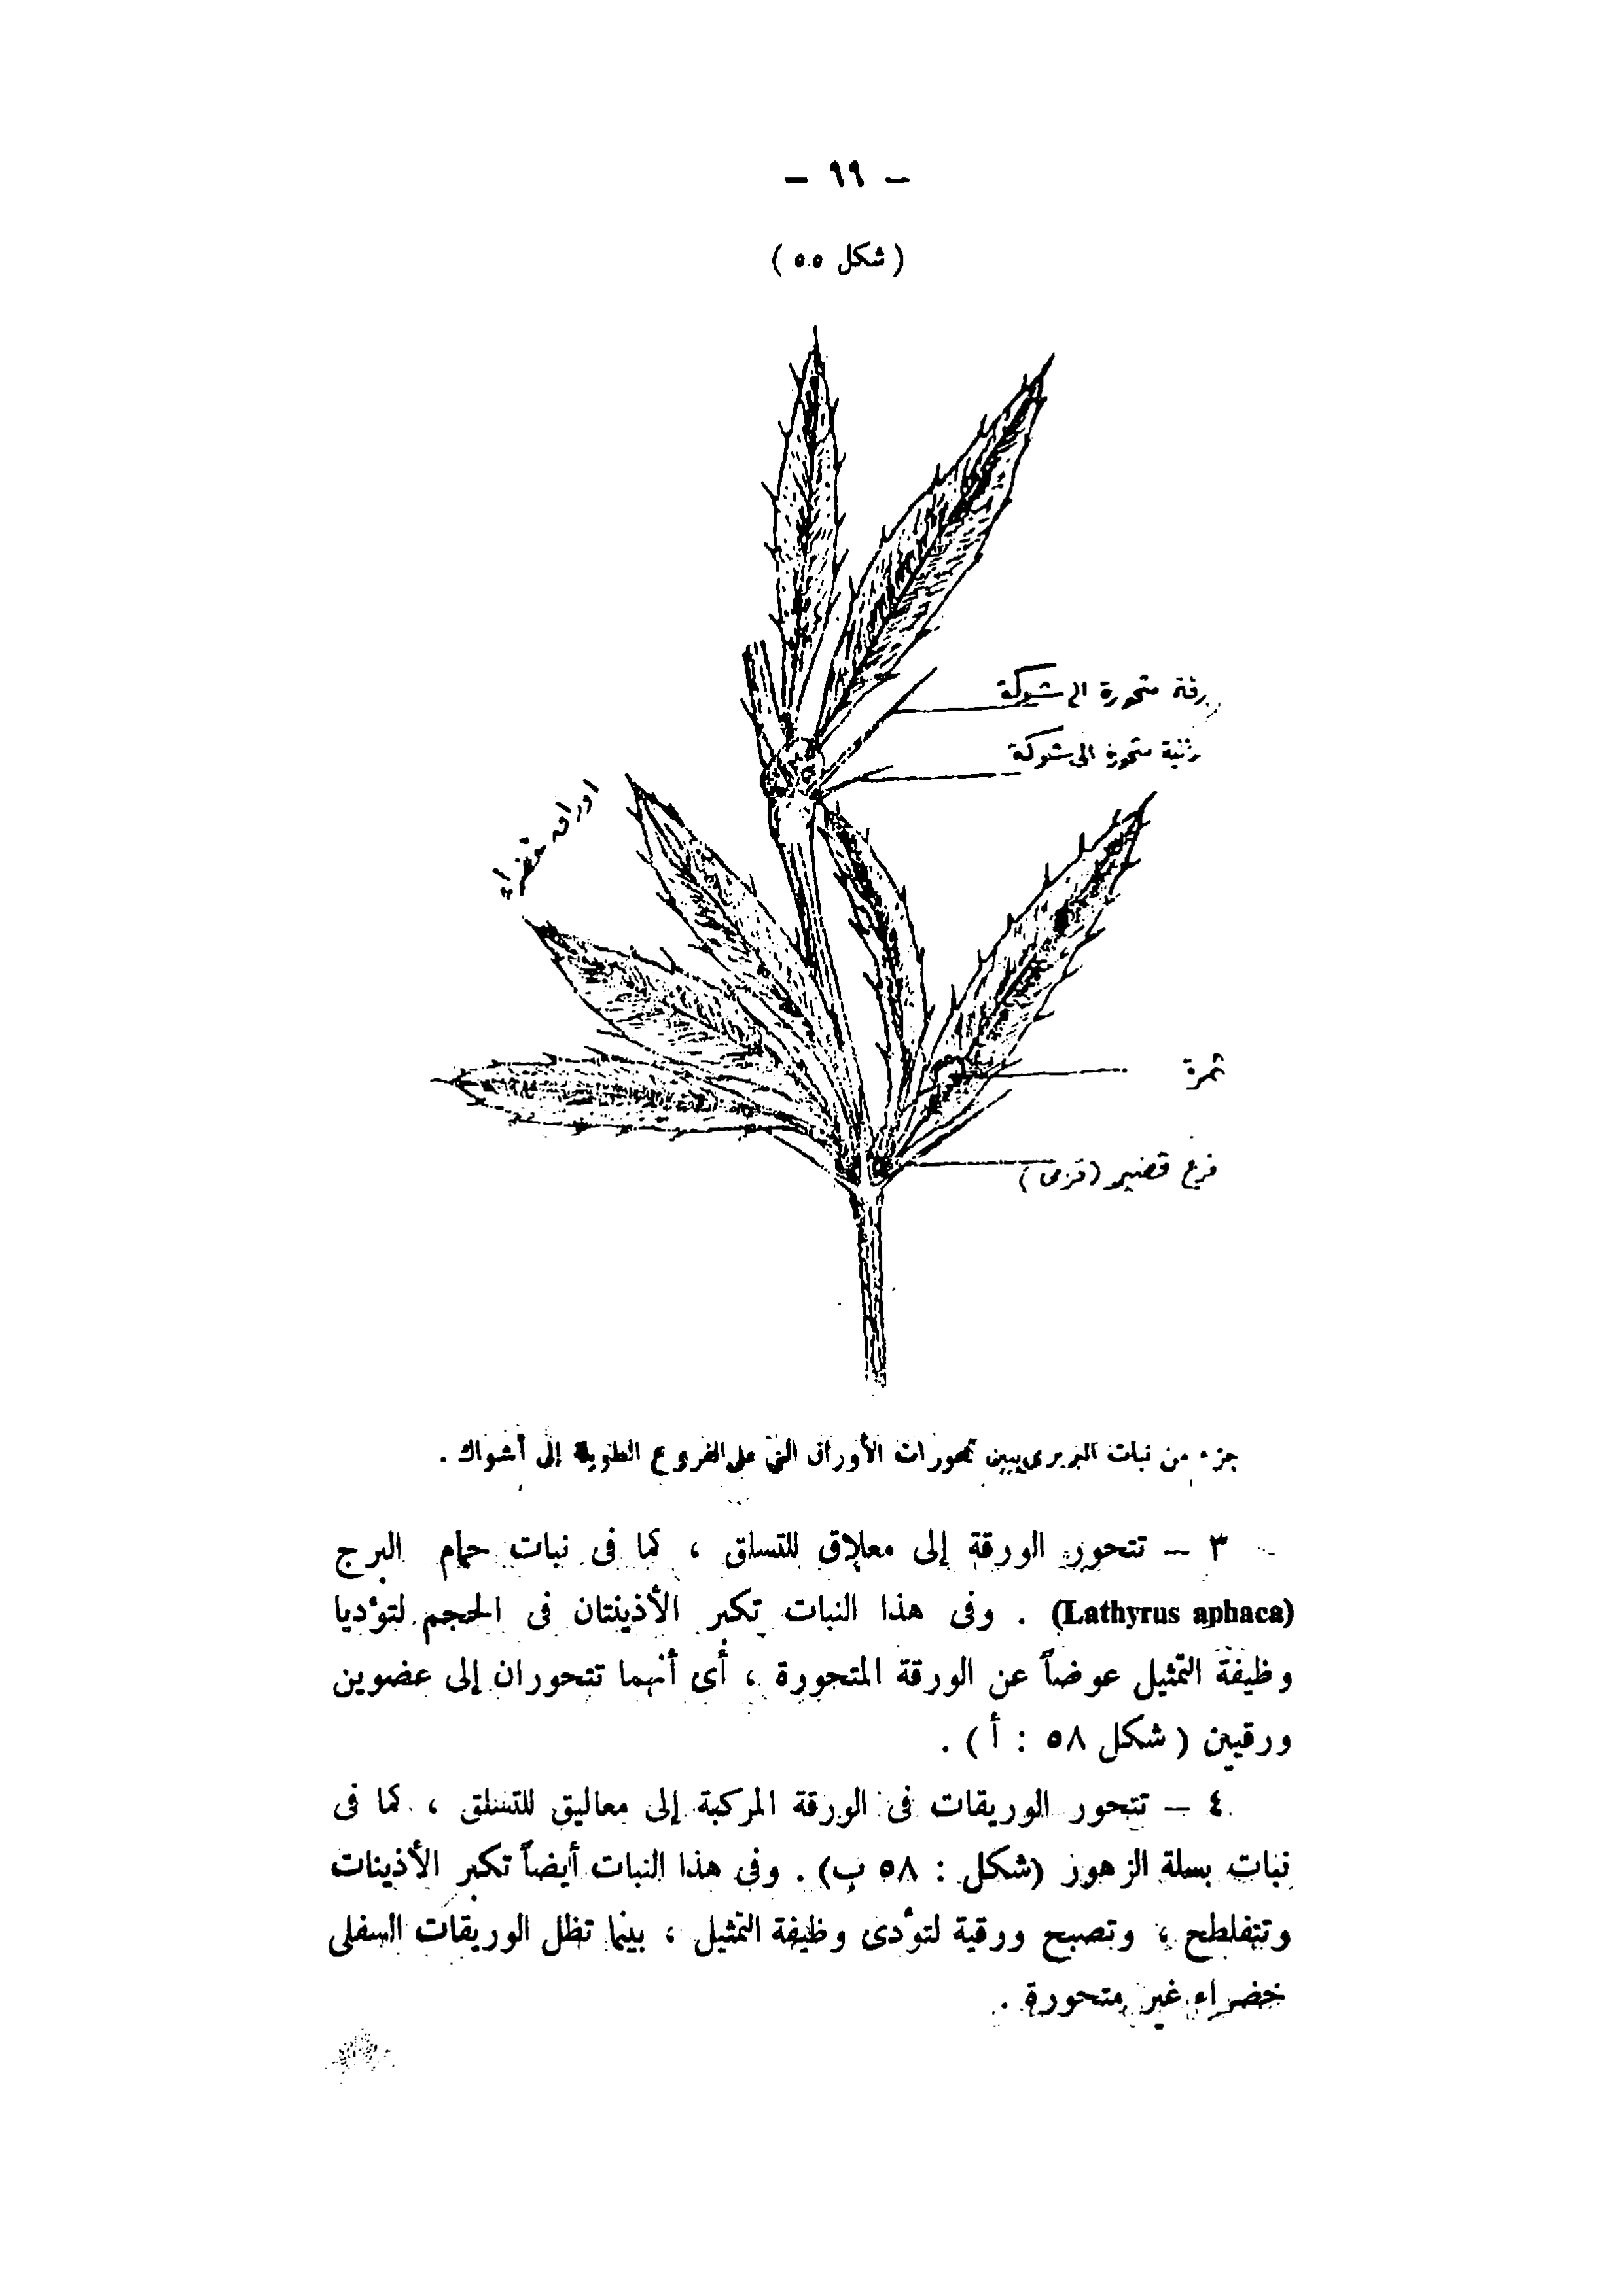 — ٩٩ —
( شكل ٥٥ )
ورقة متحورة الى شوكة
أذنية متحورة الى شوكة
اوراق خضراء
ثمرة
فرع قصير (قزمى)
جزء من نبات البربرى يبين تحورات الأوراق التى على الفروع الطويلة إلى أشواك .
٣ — تتحور الورقة إلى معلاق للتسلق ، كما فى نبات حمام البرج
(Lathyrus aphaca) . وفى هذا النبات تكبر الأذينتان فى الحجم لتوٴديا
وظيفة التمثيل عوضاً عن الورقة المتحورة ، أى أنهما تتحوران إلى عضوين
ورقيين ( شكل ٥٨ : أ ) .
٤ — تتحور الوريقات فى الورقة المركبة إلى معاليق للتسلق ، كما فى
نبات بسلة الزهور (شكل : ٥٨ ب) . وفى هذا النبات أيضاً تكبر الأذينات
وتتفلطح ، وتصبح ورقية لتوٴدى وظيفة التمثيل ، بينما تظل الوريقات السفلى
خضراء غير متحورة .